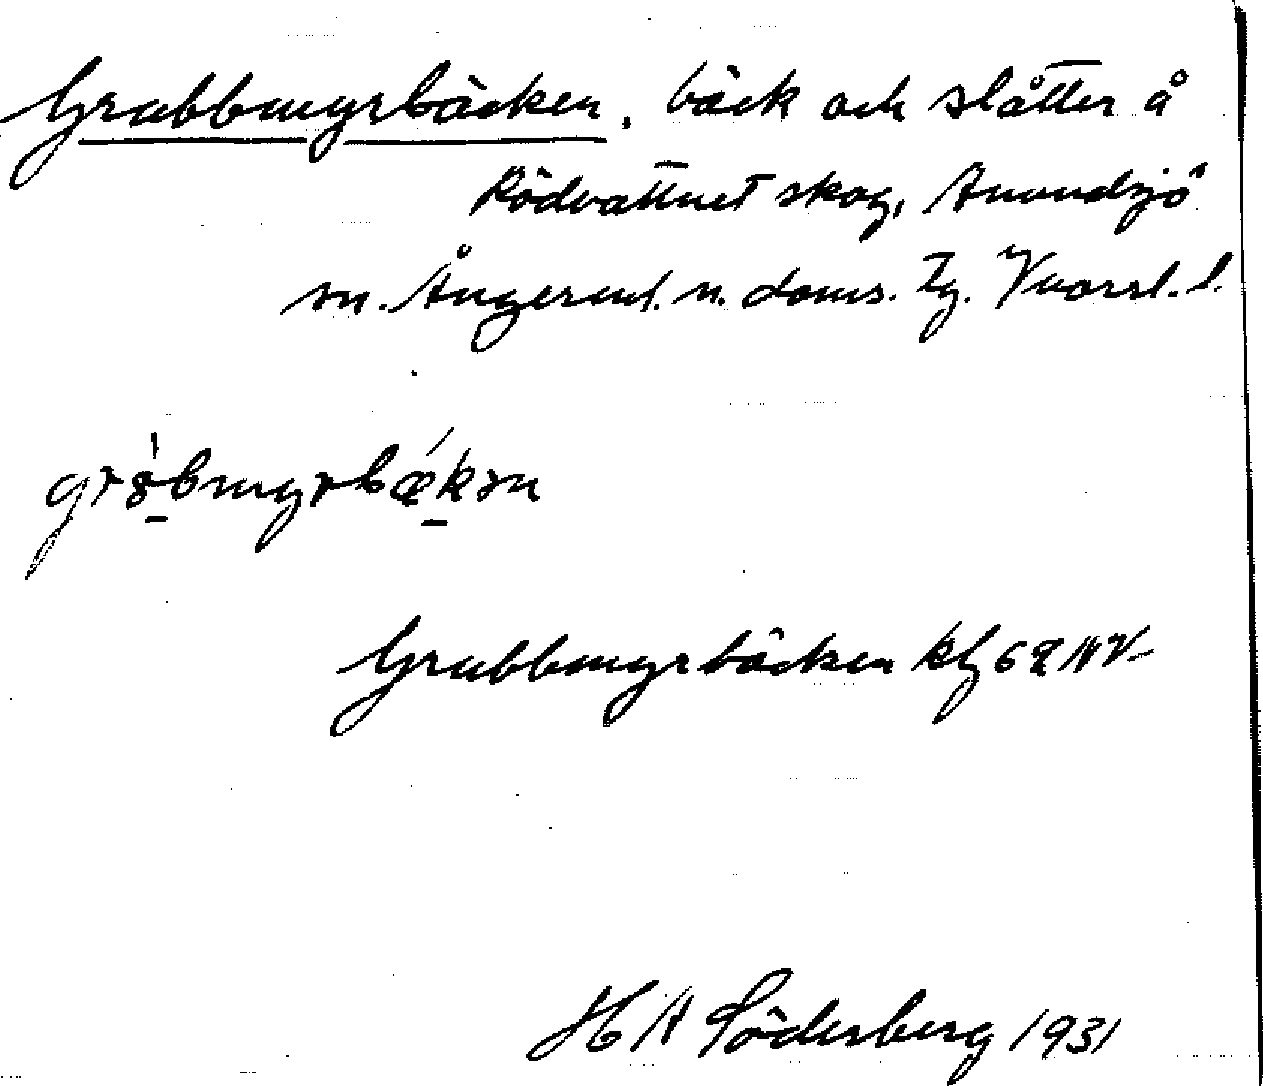 Grubbmyrbäcken, bäck och slåtter å
Rödvattnet skog, Anundsjö
sn. Ångerml. n. doms. Tg. Västernorrl. l.
Grubbmyrbäcken kfg 62 NV
H A Söderberg 1931